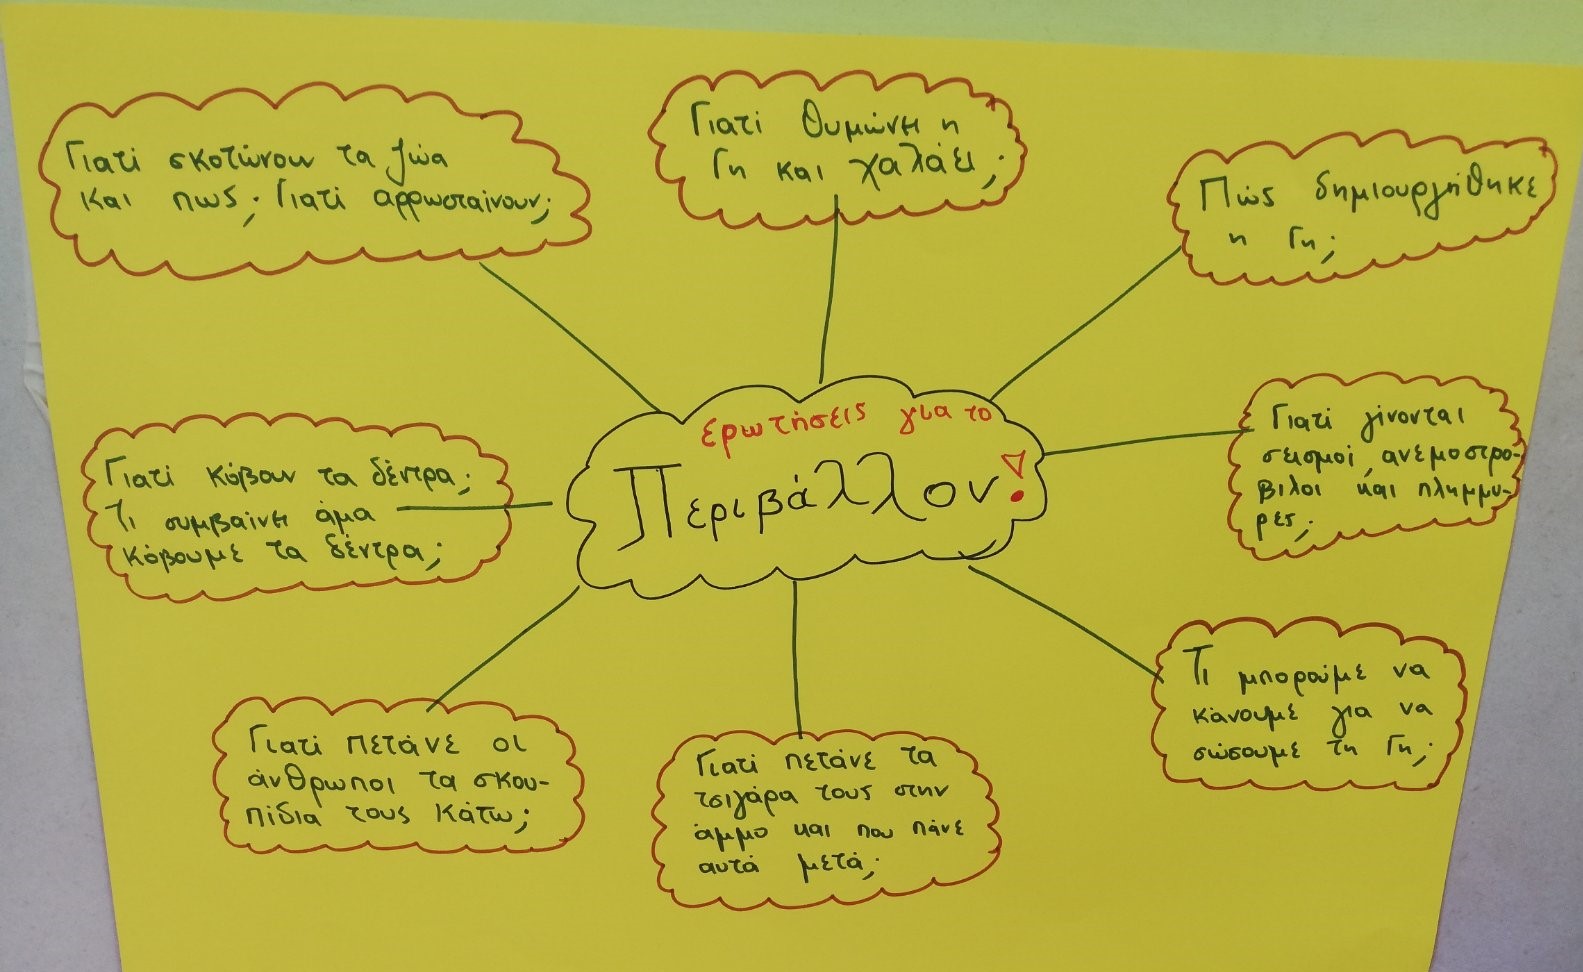 Γιατί σκοτώνουν τα ζώα
και πως; Γιατί αρρωσταίνουν;
Γιατί θυμώνει η
Γη και χαλάει;
Πώς δημιουργήθηκε
η Γη;
ερωτήσεις για το
Περιβάλλον!
Γιατί γίνονται
σεισμοί, ανεμοστρο-
βιλοι και πλημμυ-
ρες;
Γιατί κόβουν τα δέντρα;
Τι συμβαίνει άμα
κόβουμε τα δέντρα;
Τι μπορούμε να
κάνουμε για να
σώσουμε τη Γη;
Γιατί πετάνε οι
άνθρωποι τα σκου-
πίδια τους κάτω;
Γιατί πετάνε τα
τσιγάρα τους στην
άμμο και που πάνε
αυτά μετά;